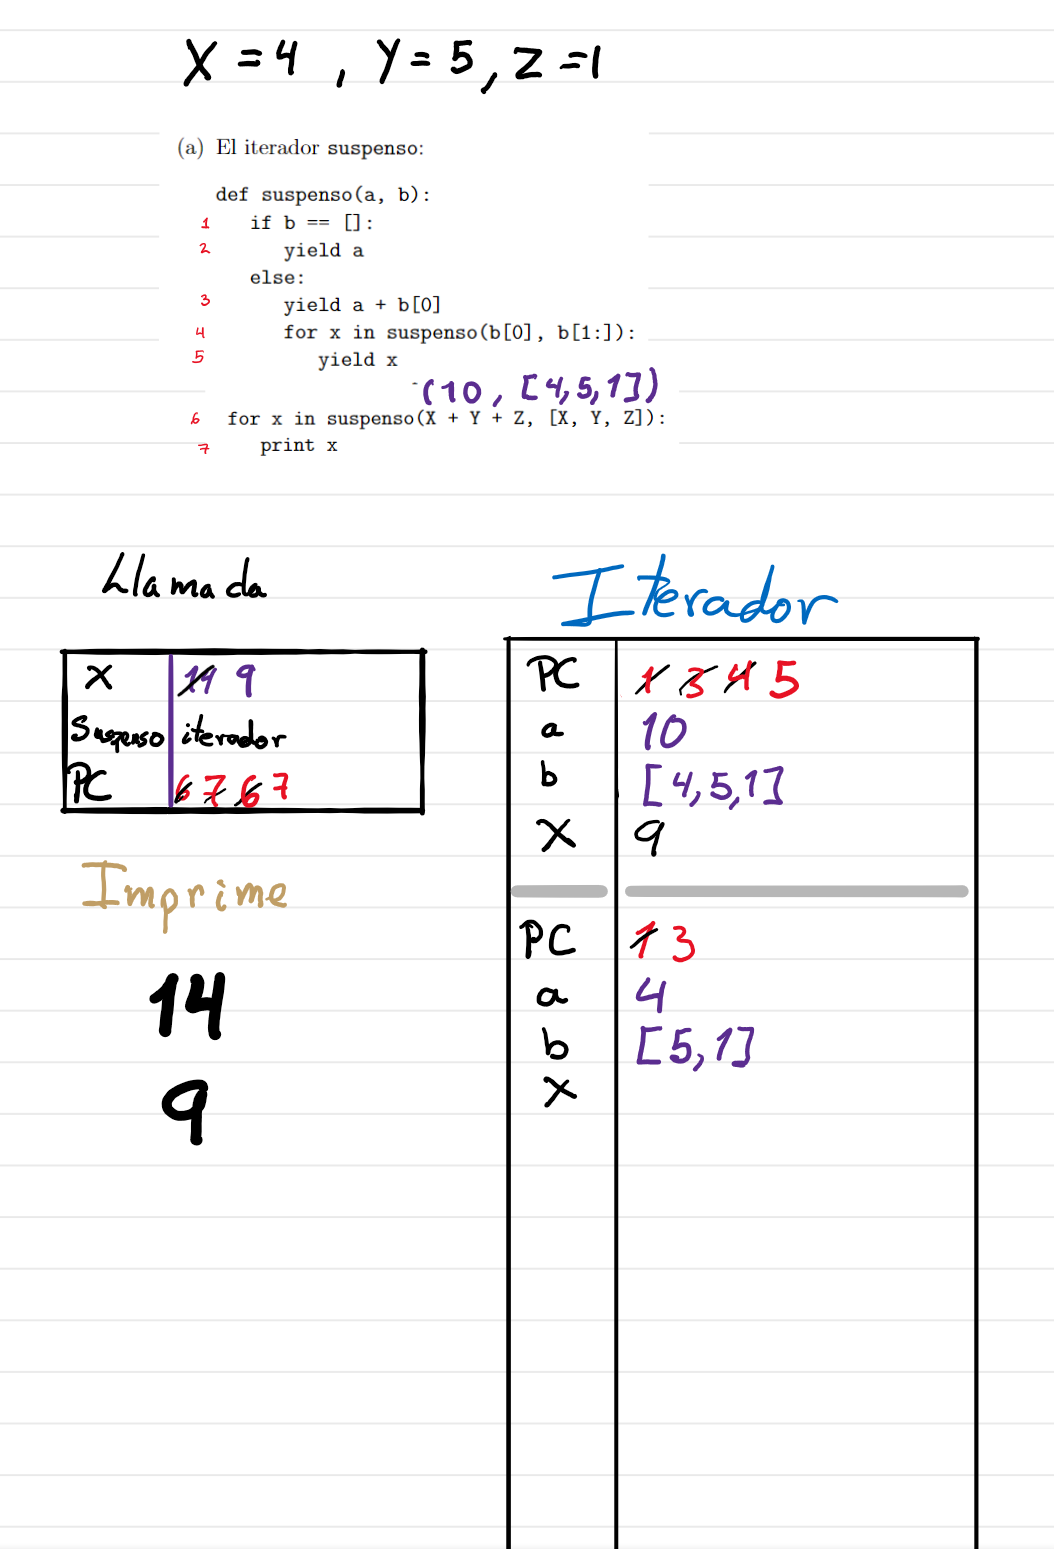 X = 4 , Y = 5, Z = 1
(a) El iterador suspenso:
def suspenso(a, b):
1 if b == []:
2 yield a
else:
3 yield a + b[0]
4 for x in suspenso(b[0], b[1:]):
5 yield x
(10, [4,5,1])
6 for x in suspenso(X + Y + Z, [X, Y, Z]):
7 print x
Llamada
X 14 9
Suspenso iterador
PC 6 7 6 7
Imprime
14
9
Iterador
PC 1 3 4 5
a 10
b [4,5,1]
X 9
PC 1 3
a 4
b [5,1]
X